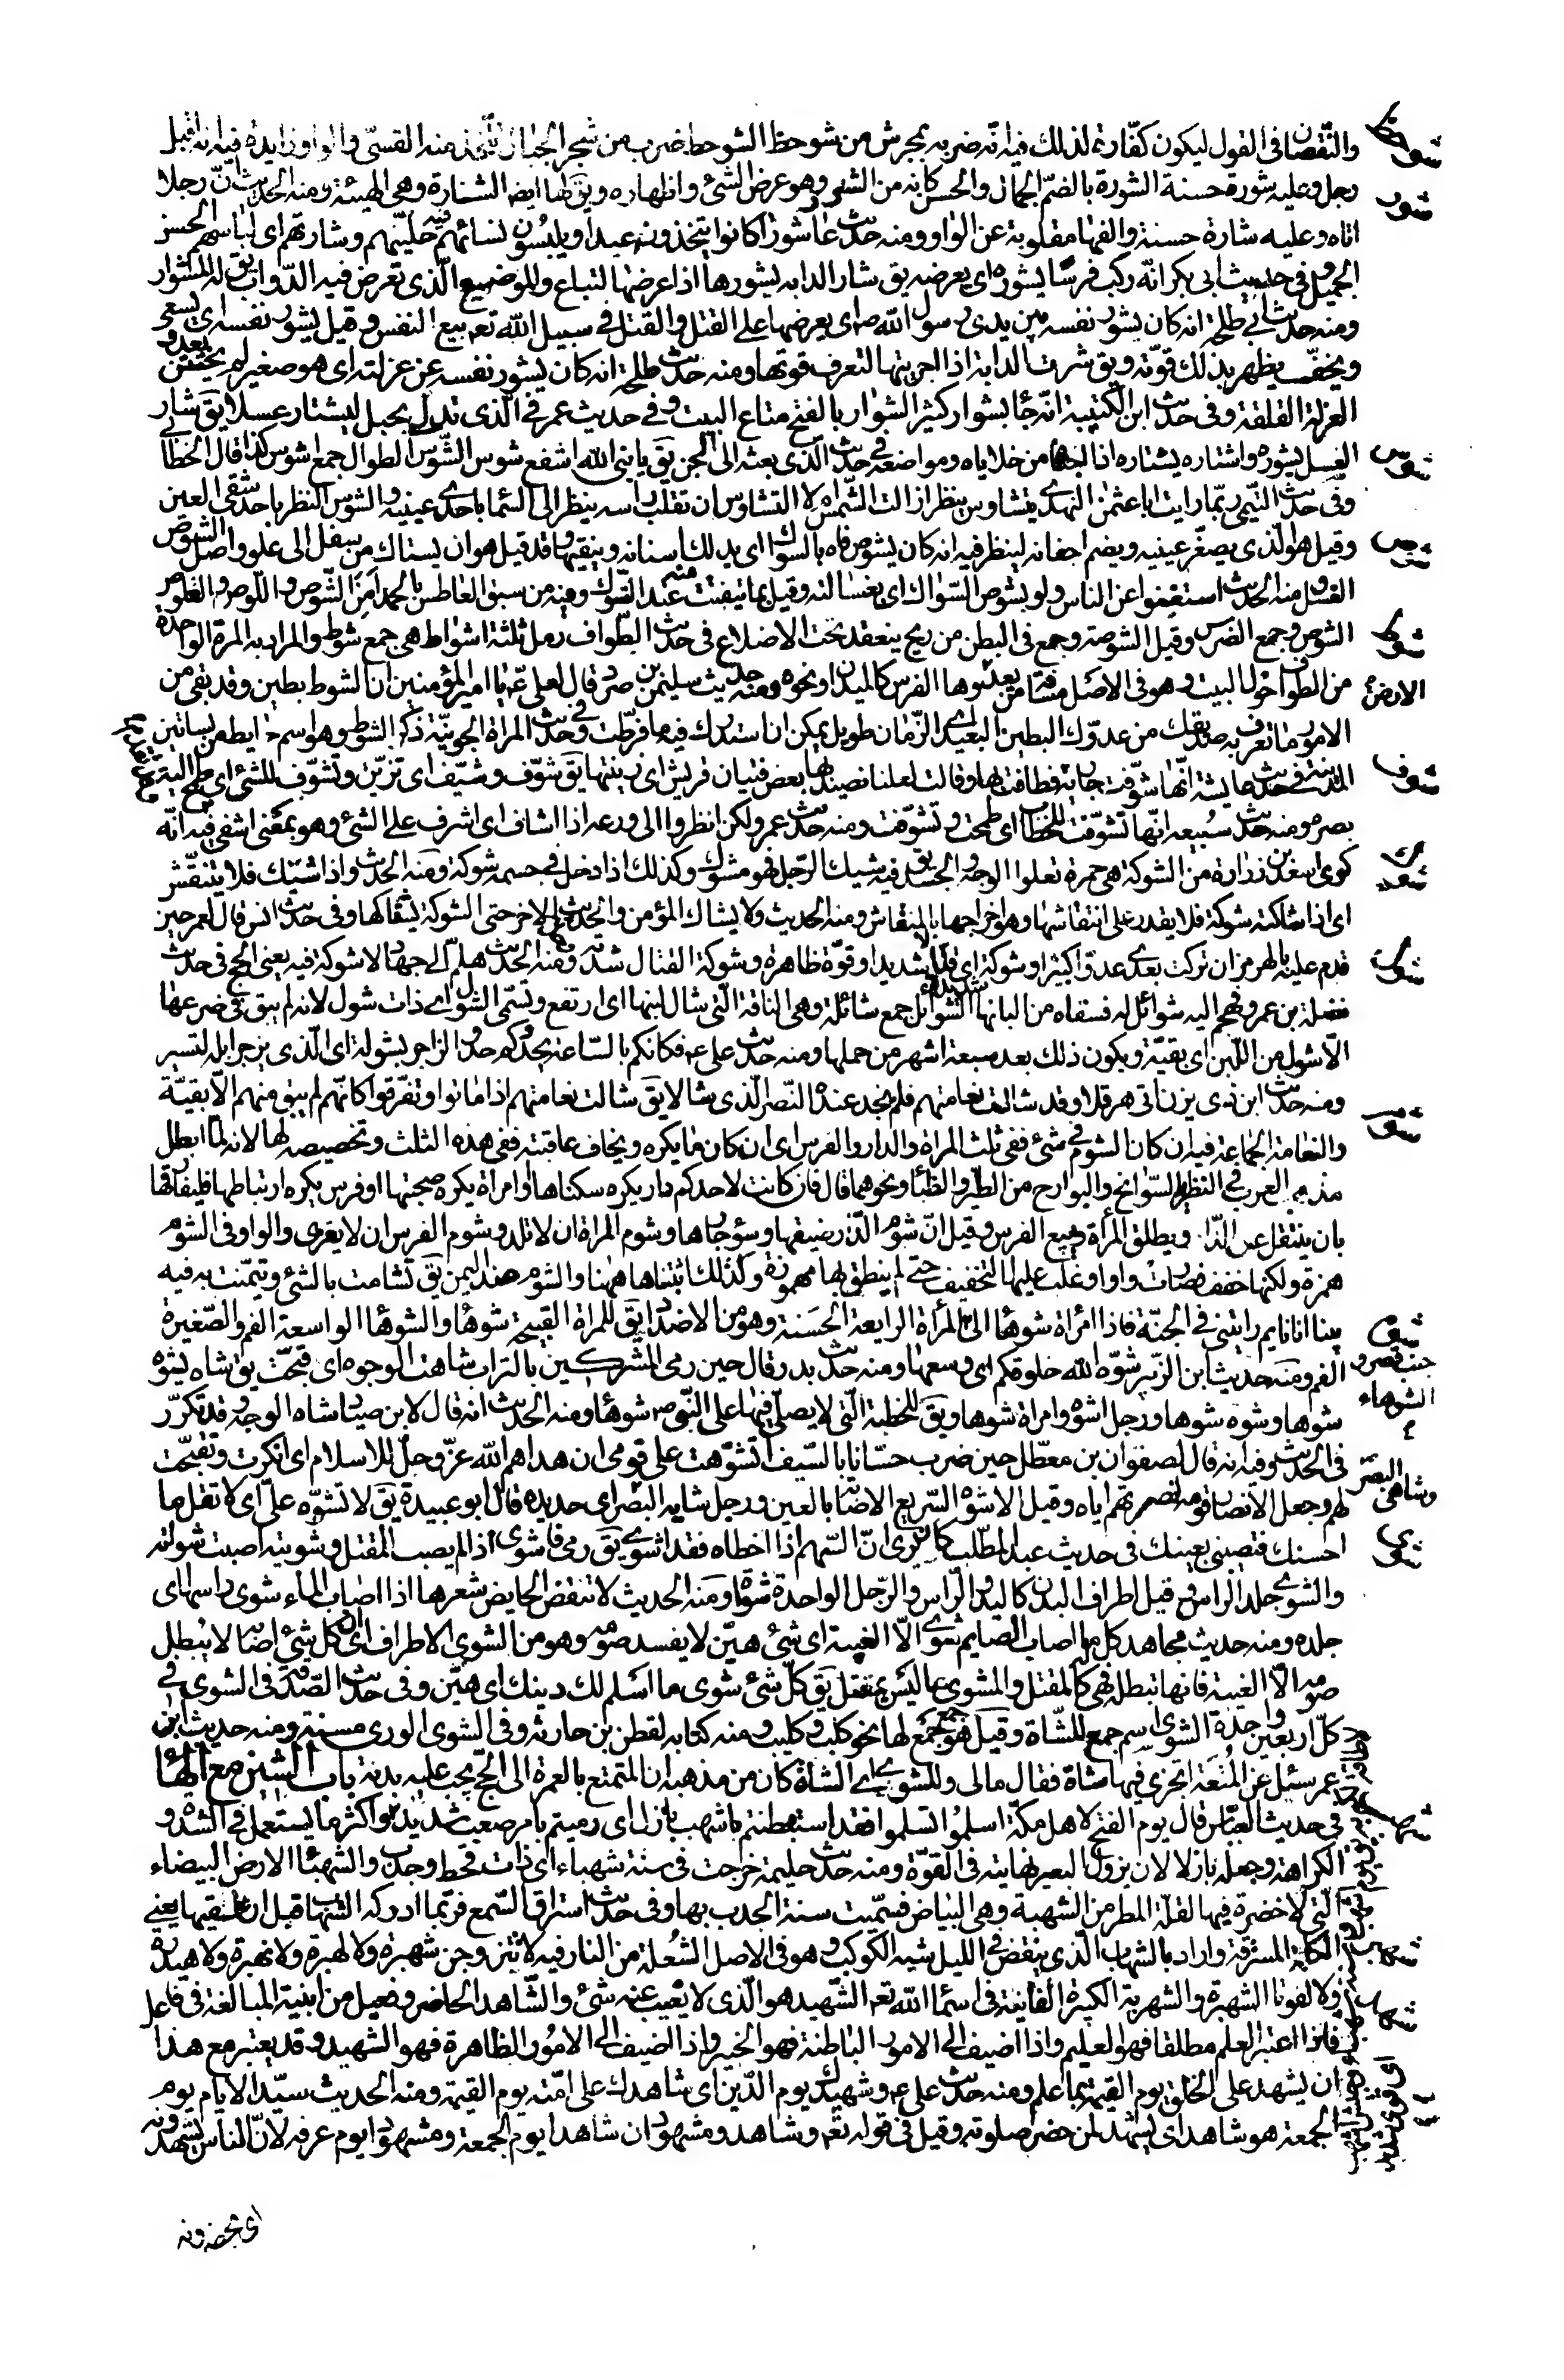 والنقصان في القول ليكون كفارة لذلك فيه انه ضربه بمخرش من شوحط الشوحط ضرب من شجر الجبال تتخذ منه القسي والواو زايدة فيه انه اقبل
شوحط
رجل وعليه شورة حسنة الشورة بالضم الجمال والحسن كانه من الشور وهو عرض الشئ واظهاره ويق لها ايض الشارة وهي الهيئة ومنه الحديث ان رجلا
شور
اتاه وعليه شارة حسنة والفها مقلوبة عن الواو ومنه حديث عاشورا كانوا يتخذونه عيدا ويلبسون نسائهم فيه حليهم وشارتهم اى لباسهم الحسن
الجميل وفي حديث ابى بكر انه ركب فرسا يشوره اى يعرضه يق شار الدابه يشورها اذا عرضها لتباع والموضع الذى تعرض فيه الدواب يق له المشوار
ومنه حديث ابي طلحة انه كان يشور نفسه بين يدى رسول الله ص اى يعرضها على القتل والقتل في سبيل الله تعه بيع النفس وقيل يشور نفسه اى يسعى
ويخف يظهر بذلك قوته ويق شرت الدابة اذا اجريتها لتعرف قوتها ومنه حديث طلحة انه كان يشور نفسه عن غرلته اى هو صغير لم يختتن بعد و
الغرلة القلفة وفى حديث ابن اللتبية انه جا بشوار كثير الشوار بالفتح متاع البيت وفي حديث عمر في الذى تدلى بحبل ليشتار عسلا يق شار
العسل يشوره واشتاره يشتاره اذا اجتناه من خلاياه ومواضعه في حديث الذى بعثه الى الجن يق يا نبى الله اشفع شوس الشوس الطوال جمع اشوس كذا قال الخطابي
شوس
وفى حديث التيمي ربما رايت ابا عثمن النهدي يتشاوس ينظر ازالت الشمس ام لا التشاوس ان تقلب راسه ينظر الى السما باحدى عينيه والشوس النظر باحد شقى العين
وقيل هو الذى يصغر عينيه ويضم اجفانه لينظر فيه انه كان يشوص فاه بالسواك اى يدلك اسنانه وينقيها وقد قيل هو ان يستاك من سفل الى علو واصل الشوص
شوص
الغسل ومنه الحديث استغنوا عن الناس ولو بشوص السواك اى بغسالته وقيل بما يتفتت منه عند التسوك وفيه من سبق العاطس بالحمد امن الشوص واللوص والعلوص
الشوص وجع الضرس وقيل الشوصة وجع في البطن من ريح ينعقد تحت الاضلاع في حديث الطواف رمل ثلثة اشواط هى جمع شوط والمراد به المرة الواحدة
شوط
من الطواف حول البيت وهو فى الاصل مسافة من الارض يعدوها الفرس كالميدان ونحوه ومنه حديث سليمن بن صرد قال لعلي ع يا امير المؤمنين ان الشوط بطين وقد بقى من
الامور ما تعرف به صديقك من عدوك البطين البعيد اى الزمان طويل يمكن ان استدرك فيه ما فرطت وفى حديث المراة الجونية ذكر الشوط وهو اسم حايط من بساتين
المدينة في حديث عايشة انها شوفت جارية فطافت بها وقالت لعلنا نصيد بها بعض فتيان قريش اى زينتها يق شوف وشيف اى تزين وتشوف للشئ اى طمح اليه
شوف
بصره ومنه حديث سبيعه انها تشوفت للخطاب اى طمحت وتشوفت ومنه حديث عمر ولكن انظروا الى ورعه اذا اشاف اى اشرف على الشئ وهو بمعنى اشفى فيه انه
كوى اسعد بن زرارة من الشوكة هي حمرة تعلوا الوجه والجسد يق فيه شيك الرجل فهو مشوك وكذلك اذا دخل في جسمه شوكة ومنه الحديث واذا شيك فلا انتقش
شوك
اى اذا شاكته شوكة فلا يقدر على انتقاشها وهو اخراجها بالمنقاش ومنه الحديث ولا يشاك المؤمن والحديث الاخر حتى الشوكة يشاكها وفى حديث انس قال لعمر حين
قدم عليه بالهرمزان تركت بعدي عدوا كبيرا وشوكة اى قتالا شديدا وقوة ظاهرة وشوكة القتال شدته ومنه الحديث هلم الى جهاد لا شوكة فيه يعنى الحج في حديث
شول
نضلة بن عمرو فهجم عليه شوائل له فسقاه من البانها الشوائل جمع شائلة وهى الناقة التى شال لبنها اى ارتفع وتسمى الشول اي ذات شول لانه لم يبق في ضرعها
الا شول من اللبن اى بقية ويكون ذلك بعد سبعة اشهر من حملها ومنه حديث على ع فكانكم بالساعة يحدوكم حدو الزاجر بشولة اى الذى يزجر ابله لتسير
ومنه حديث ابن ذى يزن اتى هرقلا وقد شالت نعامتهم فلم يجد عنده النصر الذى شالا يق شالت نعامتهم اذا ماتوا وتفرقوا كانهم لم يبق منهم الا بقية
والنعامة الجماعة فيه ان كان الشوم في شئ ففى ثلث المراة والدار والفرس اى ان كان ما يكره ويخاف عاقبته ففى هذه الثلث وتخصيصه لها لانه لما ابطل
شوم
مذهب العرب في التطير بالسوانح والبوارح من الطير والظباء ونحوهما قال فان كانت لاحدكم دار يكره سكناها او امراة يكره صحبتها او فرس يكره ارتباطها فليفارقها
بان ينتقل عن الدار ويطلق المرأة ويبيع الفرس وقيل ان شوم الدار ضيقها وسؤ جارها وشوم المراة ان لا تلد وشوم الفرس ان لا يغزى والواو فى الشوم
همزة ولكنها خففت فصارت واوا وغلب عليها التخفيف حتى لم ينطق بها مهموزة وكذلك اثبتناها ههنا والشوم ضد اليمن يق تشامت بالشئ وتيمنت به فيه
بينا انا نايم رايتنى في الجنة فاذا امراة شوها الى جنب قصر والشوهاء المرأة الرايعة الحسنة وهو من الاضداد يق للمراة القبيحة شوها والشوها الواسعة الفم والصغيرة
شوه
الفم ومنه حديث ابن الزبير شوه الله حلوقكم اى وسعها ومنه حديث بدر قال حين رمى المشركين بالتراب شاهت الوجوه اى قبحت يق شاه يشوه
شوها وشوه شوها ورجل اشوه وامراة شوها ويق للخطبة التى لا يصلى فيها على النبى ص شوها ومنه الحديث انه قال لابن صياد شاه الوجه وقد تكرر
فى الحديث وفيه انه قال لصفوان بن معطل حين ضرب حسانا بالسيف اتشوهت على قومى ان هداهم الله عز وجل للاسلام اى انكرت وتقبحت
لهم وجعل الانصار قومه لنصرتهم اياه وقيل الاشوه السريع الاصابة بالعين ورجل شايه البصر وشاهى البصر اى حديده قال ابو عبيدة يق لا تشوه علي اى لا تقل ما
احسنك فتصيبنى بعينك فى حديث عبد المطلب كان يرى ان السهم اذا اخطاه فقد اشوى يق رمى فاشوى اذا لم يصب المقتل وشويته اصبت شواته
شوى
والشوى جلد الراس وقيل اطراف البدن كاليد والراس والرجل الواحدة شواة ومنه الحديث لا تنقض الحايض شعرها اذا اصاب الماء شوى راسها اى
جلده ومنه حديث مجاهد كل ما اصاب الصايم شوى الا الغيبة اى شئ هين لا يفسد صومه وهو من الشوى الاطراف اى ان كل شئ اصابه لا يبطل
صومه الا الغيبة فانها تبطله فهى كالمقتل والشوى ما ليس بمقتل يق كل شئ شوى ما اسلم لك دينك اى هين وفى حديث الصدقة في الشوى في
كل اربعين واحدة الشوى اسم جمع للشاة وقيل هو جمع لها نحو كلب وكليب ومنه كتابه لقطن بن حارثة وفى الشوى الورى مسنة ومنه حديث ابن
عمر سئل عن المتعة اتجزى فيها شاة فقال مالى وللشوى اي الشاة كان من مذهبه ان المتمتع بالعمرة الى الحج يجب عليه بدنة باب الشين مع الهاء
فى حديث العباس قال يوم الفتح لاهل مكة اسلموا تسلموا فقد استبطنتم باشهب بازل اى رميتم بامر صعب شديد واكثر ما يستعمل في الشدة و
شهب
الكراهة وجعله بازلا لان بزول البعير نهايته فى القوة ومنه حديث حليمة خرجت في سنة شهباء اى ذات قحط وجدب والشهباء الارض البيضاء
التى لا خضرة فيها لقلة المطر من الشهبة وهى البياض فسميت سنة الجدب بها وفى حديث استراق السمع فربما ادركه الشهاب قبل ان يلقيها يعني
الكلمة المسترقة واراد بالشهاب الذى ينقض في الليل شبه الكوكب وهو فى الاصل الشعلة من النار فيه لا تتزوجن شهبرة ولا لهبرة ولا نهبرة ولا هيدرة
شهبر
ولا لفوتا الشهبرة والشهربة الكبيرة الفانية فى اسما الله تعه الشهيد هو الذى لا يغيب عنه شئ والشاهد الحاضر وفعيل من ابنية المبالغة فى فاعل
فاذا اعتبر العلم مطلقا فهو العليم واذا اضيف الى الامور الباطنة فهو الخبير واذا اضيف الى الامور الظاهرة فهو الشهيد وقد يعتبر مع هذا
ان يشهد على الخلق يوم القيمة بما علم ومنه حديث على ع وشهيدك يوم الدين اى شاهدك على امته يوم القيمة ومنه الحديث سيد الايام يوم
الجمعة هو شاهد اى يشهد لمن حضر صلوته وقيل فى قوله تعه وشاهد ومشهود ان شاهدا يوم الجمعة ومشهودا يوم عرفه لان الناس يشهدونه
اى يحضرونه